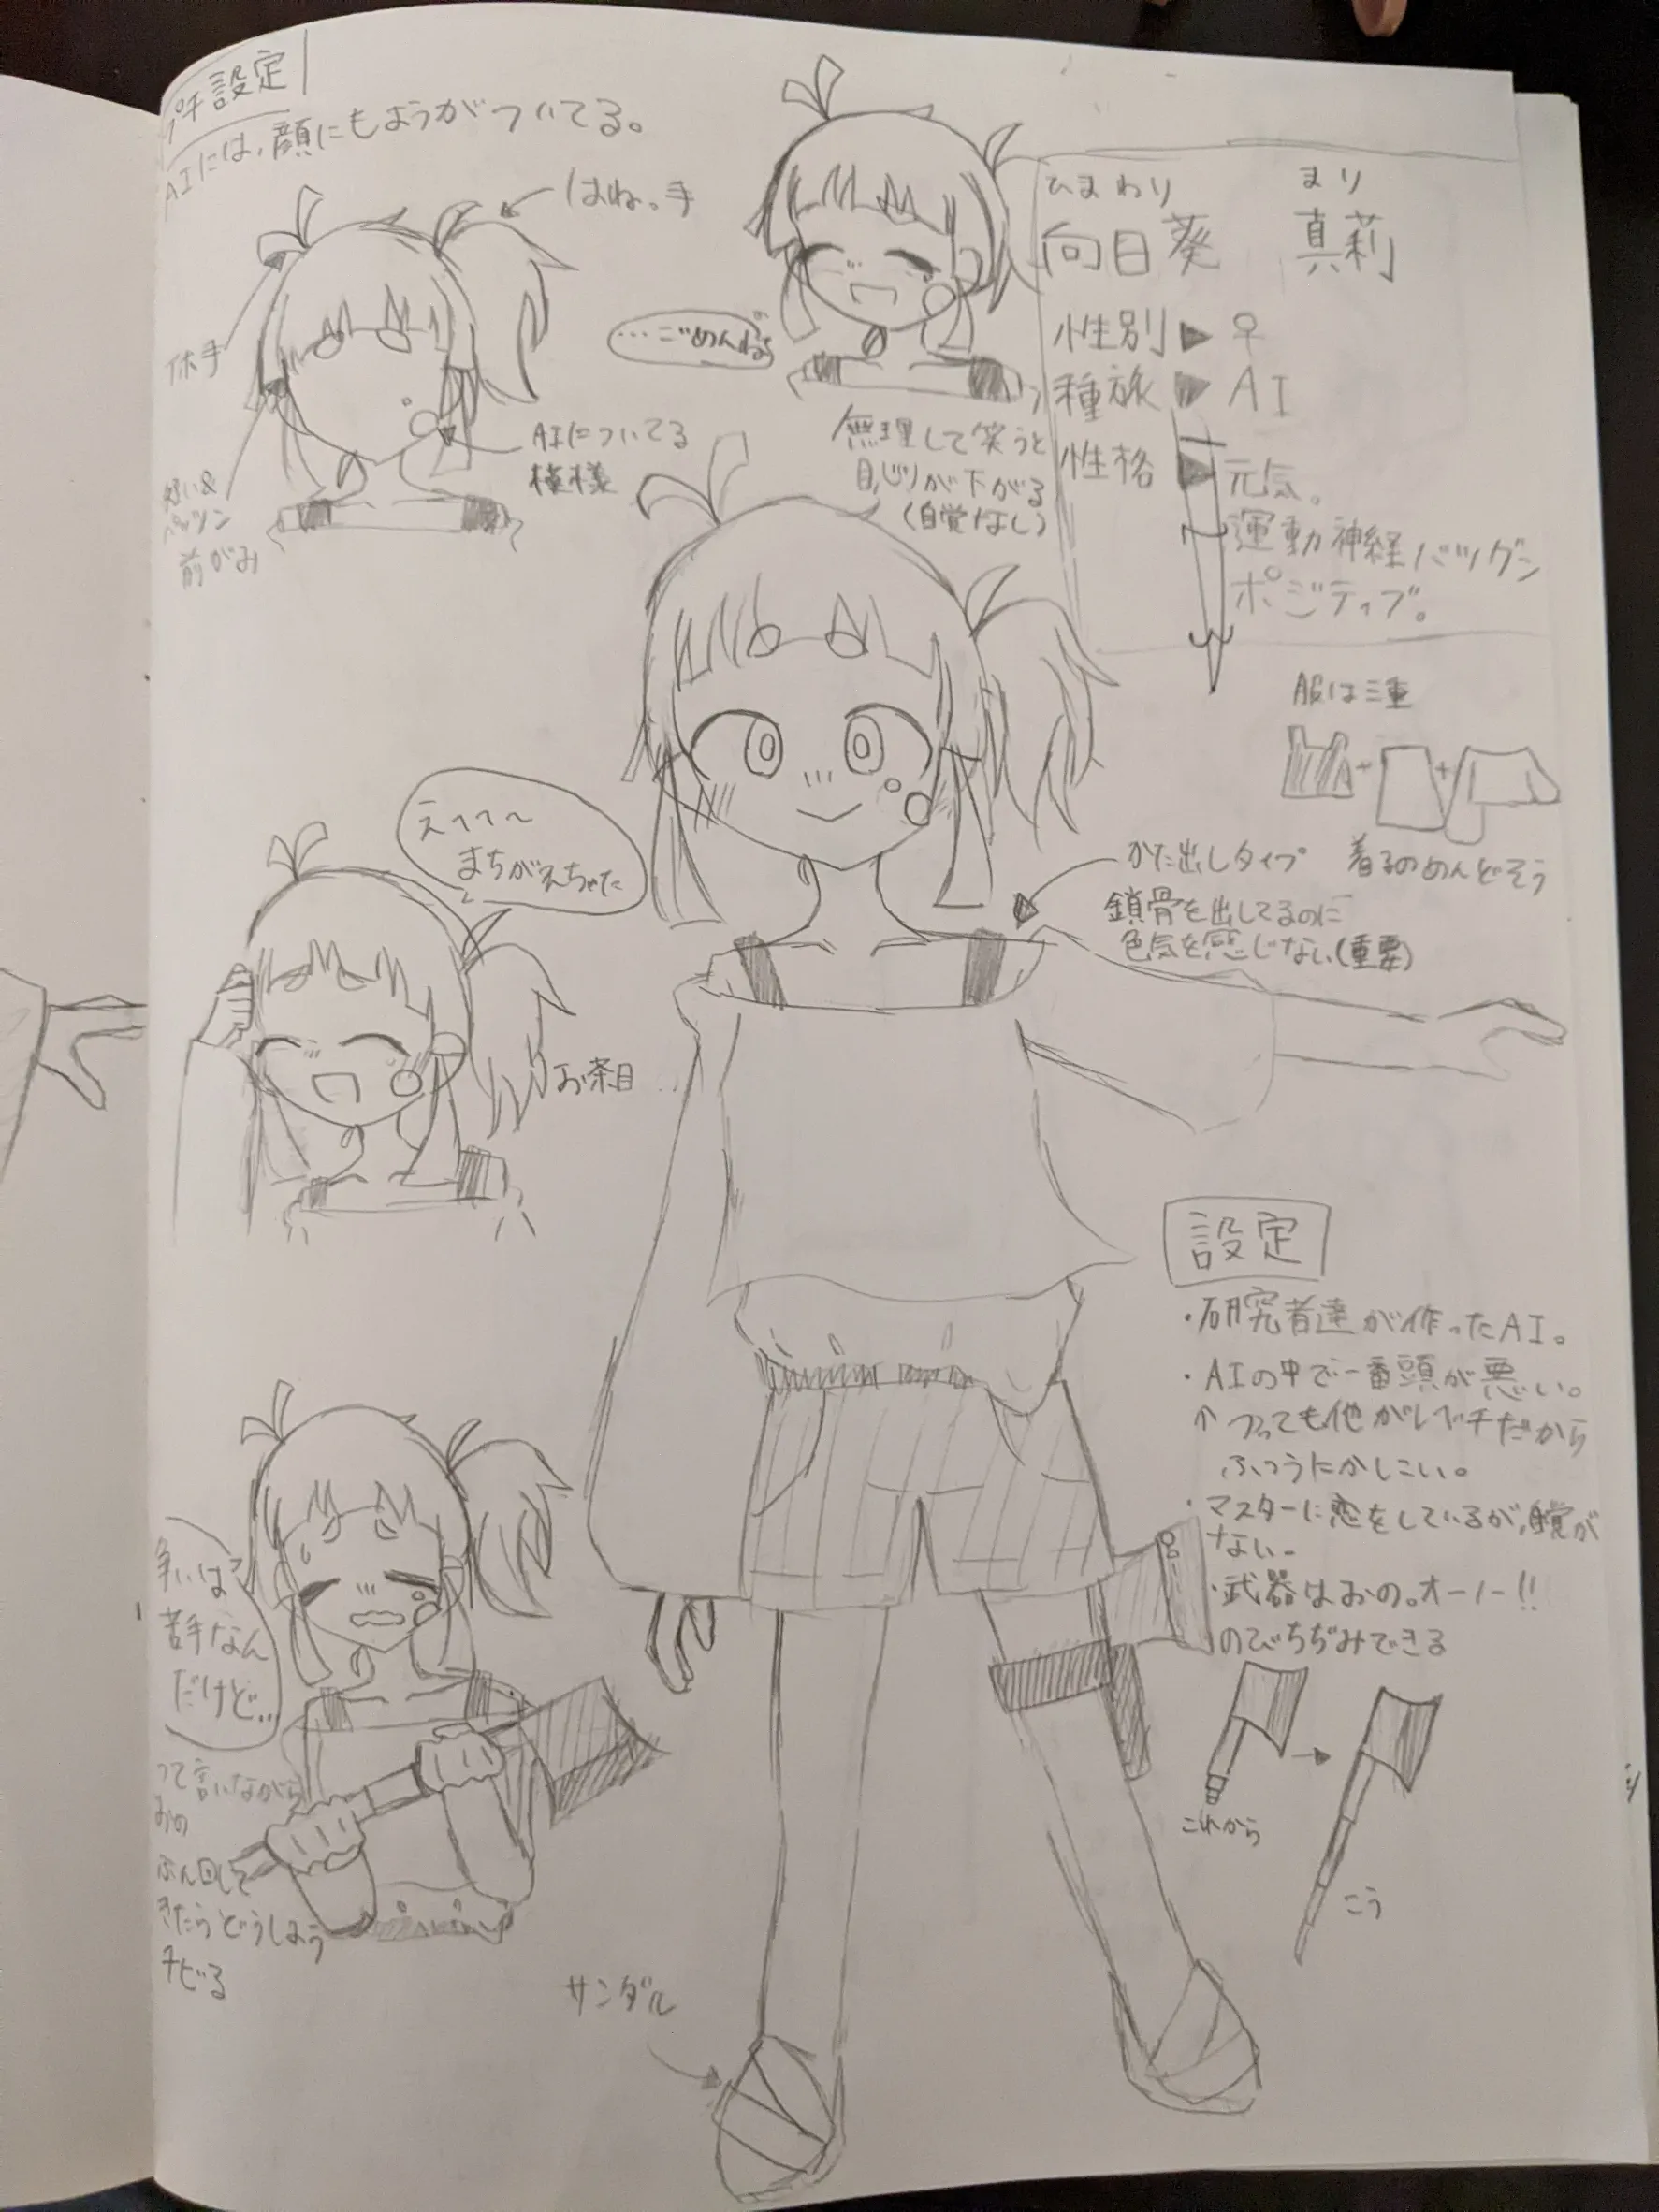 プチ設定
AIには、顔にもようがついてる。
はねっ毛
AIについてる
模様
短い&
パッツン
前がみ
…ごめんね
無理して笑うと
目じりが下がる
(自覚なし)
ひまわり まり
向日葵 真莉
性別▶♀
種族▶AI
性格▶元気。
運動神経バツグン
ポジティブ。
服は三重
+ +
着るのめんどそう
かた出しタイプ
鎖骨を出してるのに
色気を感じない(重要)
えへへ〜
まちがえちゃた
お茶目
設定
・研究者達が作ったAI。
・AIの中で一番頭が悪い。
↑つっても他がレベチだから
ふつうにかしこい。
・マスターに恋をしているが、自覚が
ない。
・武器はおの。オーノー!!
のびちぢみできる
これから
こう
争いは
苦手なん
だけど…
って言いながら
おの
ぶん回して
きたらどうしよう
チビる
サンダル